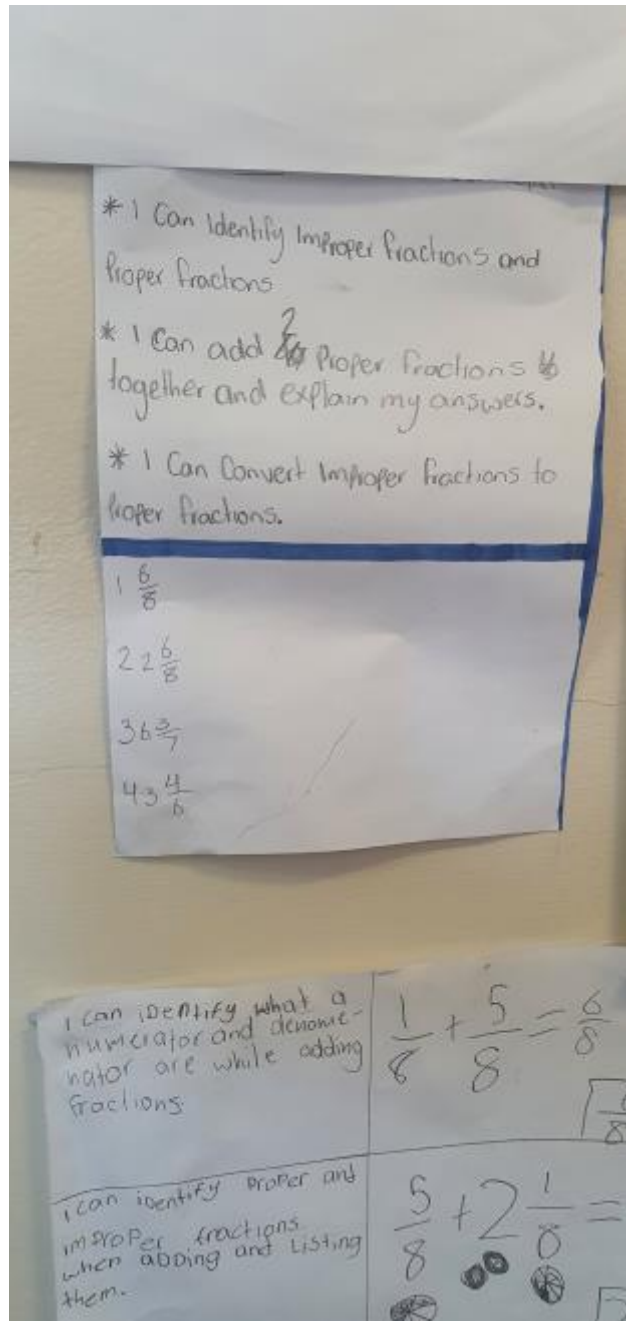 * I Can Identify Improper fractions and
Proper fractions
* I Can add 2 Proper fractions
together and explain my answers.
* I Can Convert Improper fractions to
Proper fractions.
1 6/8
2 2 6/8
3 6 3/7
4 3 4/6
I can iDentify what a
numerator and denome-
nator are while adding
fractions
1/8 + 5/8 = 6/8
I can identify proper and
improper fractions
when adding and Listing
them.
5/8 + 2 1/8 =